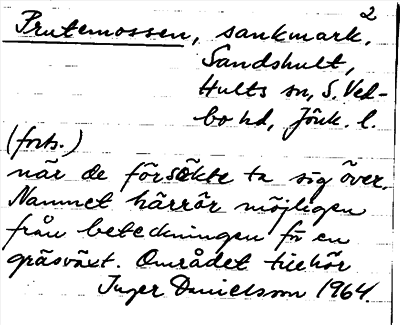 2
Prutemossen, sankmark.
Sandshult,
Hults sn, S. Ved-
bo hd, Jönk. l.
(forts.)
när de försökte ta sig över.
Namnet härrör möjligen
från beteckningen för en
gräsväxt. Området tillhör
Inger Danielsson 1964.